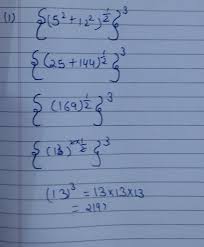 (1) {(5²+12²)^½}³
{(25+144)^½}³
{(169)^½}³
{(13)^2×½}³
(13)³ = 13×13×13
= 2197